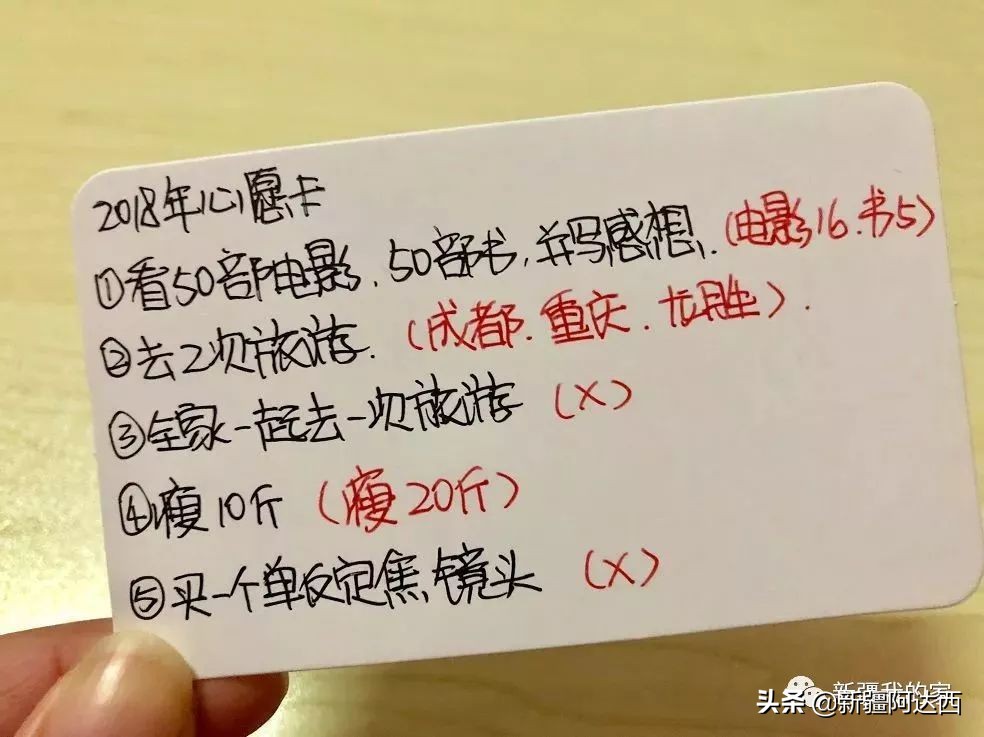 2018年心愿卡
①看50部电影.50部书,并写感想.(电影16.书5)
②去2次旅游.(成都.重庆.龙胜).
③全家一起去一次旅游(X)
④瘦10斤(瘦20斤)
⑤买一个单反定焦镜头(X)
新疆我的家
头条@新疆阿达西